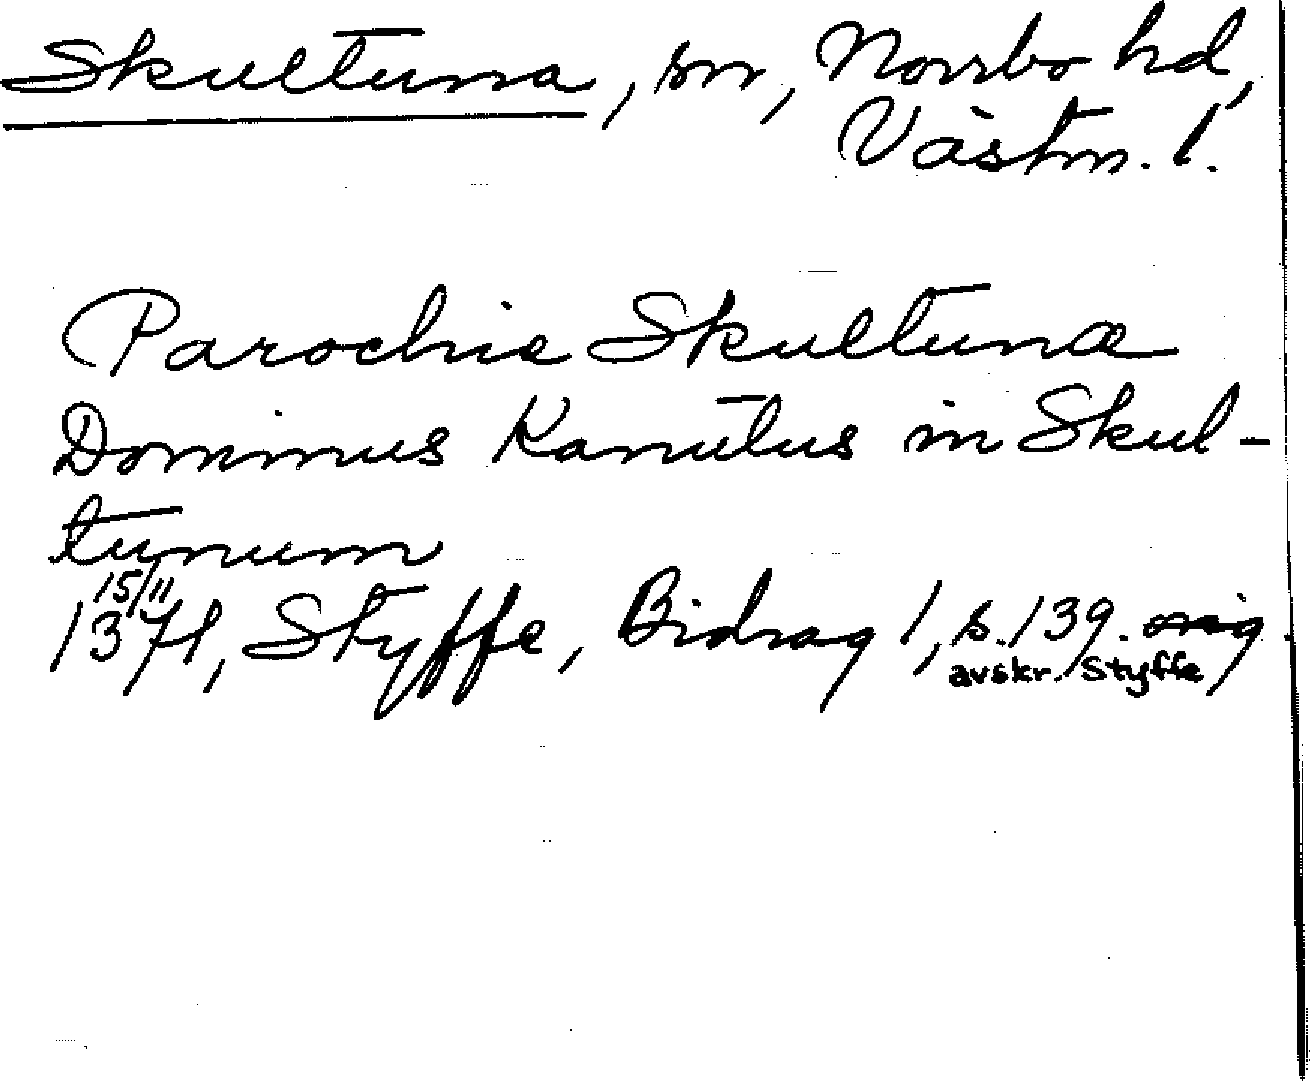 Skultuna, sn, Norrbo hd,
Västm. l.
Parochia Skultuna
Dominus Kanutus in Skul-
tunum
15/11
1371, Styffe, Bidrag 1, s. 139. orig.
avskr. Styffe